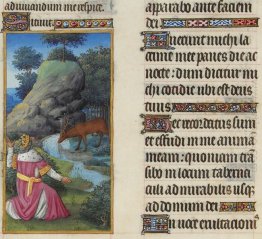 adiuuandum me respice.
apparabo ante faciem
dei
Fuerunt michi la
crime mee panes die ac
nocte: dum dicitur mi
chi cotidie ubi est deus
tuus
Hec recordatus sum
et effudi in me animā
meam: quoniam trā
sibo in locum taberna
culi admirabilis usq̃
ad domum dei
In uoce exultationis